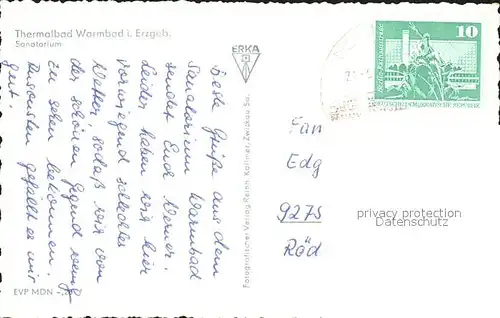 Thermalbad Warmbad i. Erzgeb.
Sanatorium
Beste Grüße aus dem
Sanatorium Warmbad
sendet Euch Werner.
Leider haben wir hier
vorwiegend schlechtes
Wetter, sodaß wir von
der schönen Gegend wenig
zu sehen bekommen.
Ansonsten gefällt es mir
gut.
EVP MDN
ERKA
Fotografischer Verlag Reinh. Kallmer, Zwickau Sa.
10
DEUTSCHE DEMOKRATISCHE REPUBLIK
Fam
Edg
9275
Röd
privacy protection
Datenschutz